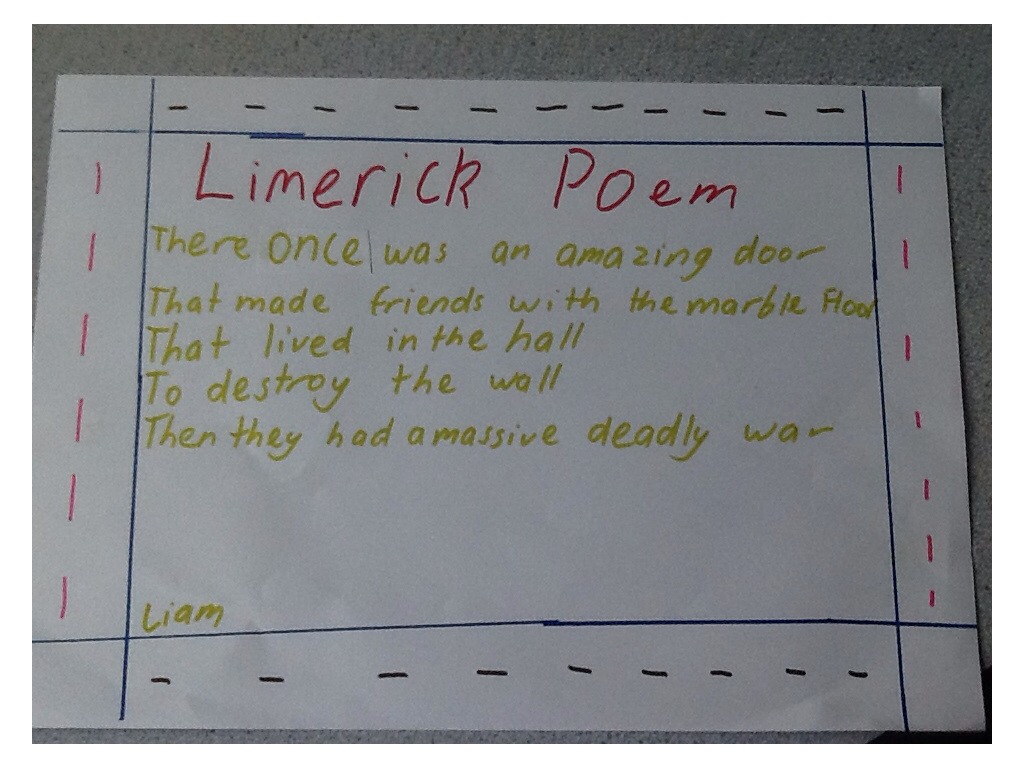 Limerick Poem
There once was an amazing door
That made friends with the marble Floor
That lived in the hall
To destroy the wall
Then they had a massive deadly war
Liam